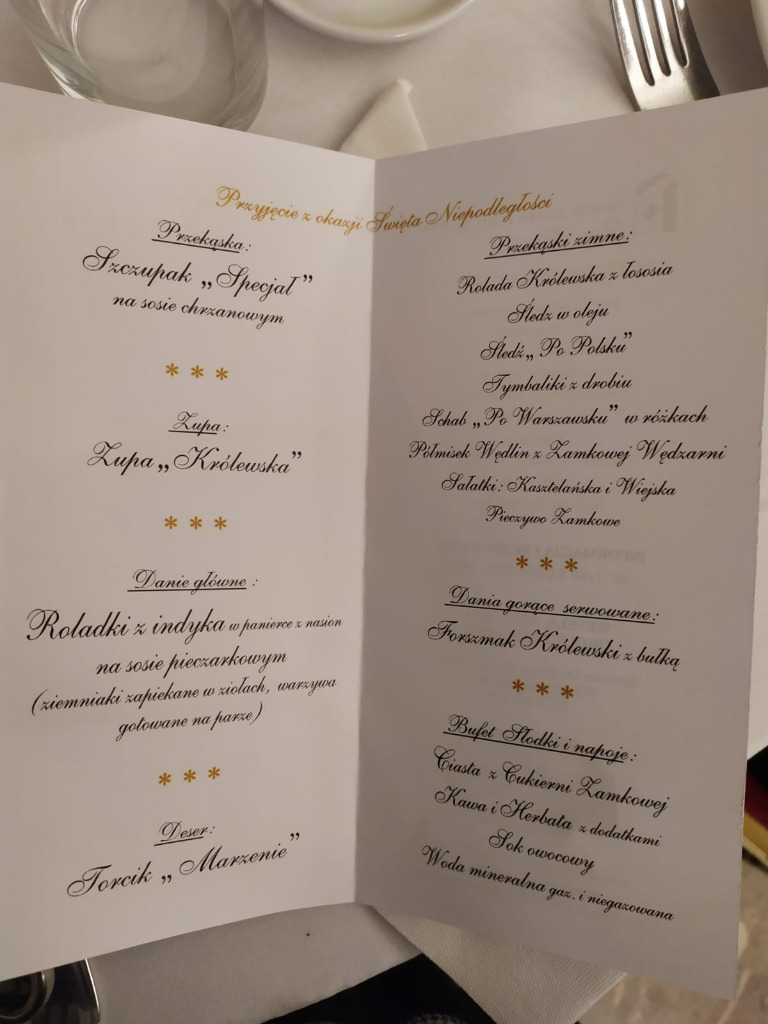 Przyjęcie z okazji Święta Niepodległości
Przekąska:
Szczupak „Specjał”
na sosie chrzanowym
* * *
Zupa:
Zupa „Królewska”
* * *
Danie główne :
Roladki z indyka w panierce z nasion
na sosie pieczarkowym
(ziemniaki zapiekane w ziołach, warzywa
gotowane na parze)
* * *
Deser:
Torcik „Marzenie”
Przekąski zimne:
Rolada Królewska z łososia
Śledz w oleju
Śledź „Po Polsku”
Tymbaliki z drobiu
Schab „Po Warszawsku” w różkach
Półmisek Wędlin z Zamkowej Wędzarni
Sałatki: Kasztelańska i Wiejska
Pieczywo Zamkowe
* * *
Dania gorące serwowane:
Forszmak Królewski z bułką
* * *
Bufet Słodki i napoje:
Ciasta z Cukierni Zamkowej
Kawa i Herbata z dodatkami
Sok owocowy
Woda mineralna gaz. i niegazowana